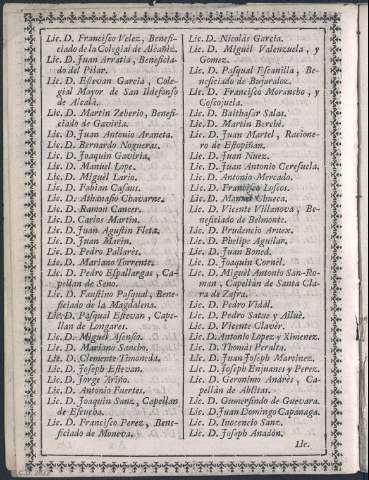 Lic. D. Francisco Velez, Benefi-
ciado de la Colegial de Alcañiz.
Lic. D. Juan Arratia, Beneficia-
do del Pilar.
Lic. D. Estevan Garcia, Cole-
gial Mayor de San Ildefonso
de Alcalà.
Lic. D. Martin Zeberio, Benefi-
ciado de Gaviria.
Lic. D. Juan Antonio Arameta.
Lic. D. Bernardo Nogueras.
Lic. D. Joaquin Gaviria.
Lic. D. Manuel Lope.
Lic. D. Miguel Lario.
Lic. D. Fabian Casaus.
Lic. D. Athanasio Chavarne.
Lic. D. Ramon Cancer.
Lic. D. Carlos Martin.
Lic. D. Juan Agustin Flota.
Lic. D. Juan Marin.
Lic. D. Pedro Pallarès.
Lic. D. Mariano Torrente.
Lic. D. Pedro Espallargas, Ca-
pellan de Seno.
Lic. D. Faustino Pasqual, Bene-
ficiado de la Magdalena.
Lic. D. Pasqual Estevan, Cape-
llan de Longares.
Lic. D. Miguel Asensio.
Lic. D. Mariano Sancho.
Lic. D. Clemente Timoneda.
Lic. D. Joseph Estevan.
Lic. D. Jorge Ariño.
Lic. D. Antonio Fuertes.
Lic. D. Joaquin Sanz, Capellan
de Escucha.
Lic. D. Francisco Perez, Bene-
ficiado de Moneva.
Lic. D. Nicolás Garcia.
Lic. D. Miguel Valenzuela, y
Gomez.
Lic. D. Pasqual Escanilla, Be-
neficiado de Bujaraloz.
Lic. D. Francisco Morancho, y
Coscojuela.
Lic. D. Balthasar Salas.
Lic. D. Martin Berchè.
Lic. D. Juan Martel, Racione-
ro de Estopiñan.
Lic. D. Juan Nuez.
Lic. D. Juan Antonio Ceresuela.
Lic. D. Antonio Mercado.
Lic. D. Francisco Loscos.
Lic. D. Manuel Chueca.
Lic. D. Vicente Villanova, Be-
neficiado de Belmonte.
Lic. D. Prudencio Aruex.
Lic. D. Phelipe Aguilar.
Lic. D. Juan Boned.
Lic. D. Joaquin Corniel.
Lic. D. Miguel Antonio San-Ro-
man, Capellàn de Santa Cla-
ra de Zafra.
Lic. D. Pedro Vidàl.
Lic. D. Pedro Satue y Alluè.
Lic. D. Vicente Clavèr.
Lic. D. Antonio Lopez y Ximenez.
Lic. D. Thomàs Peralta.
Lic. D. Juan Joseph Martinez.
Lic. D. Joseph Enjuanes y Perez.
Lic. D. Geronimo Andrès, Ca-
pellàn de Ablitas.
Lic. D. Gumersindo de Guevara.
Lic. D. Juan Domingo Capanaga.
Lic. D. Inocencio Sanz.
Lic. D. Joseph Anadòn.
Lic.